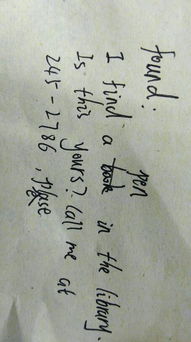 found:
pen
I find a book in the library.
Is this yours? Call me at
245-2786, please